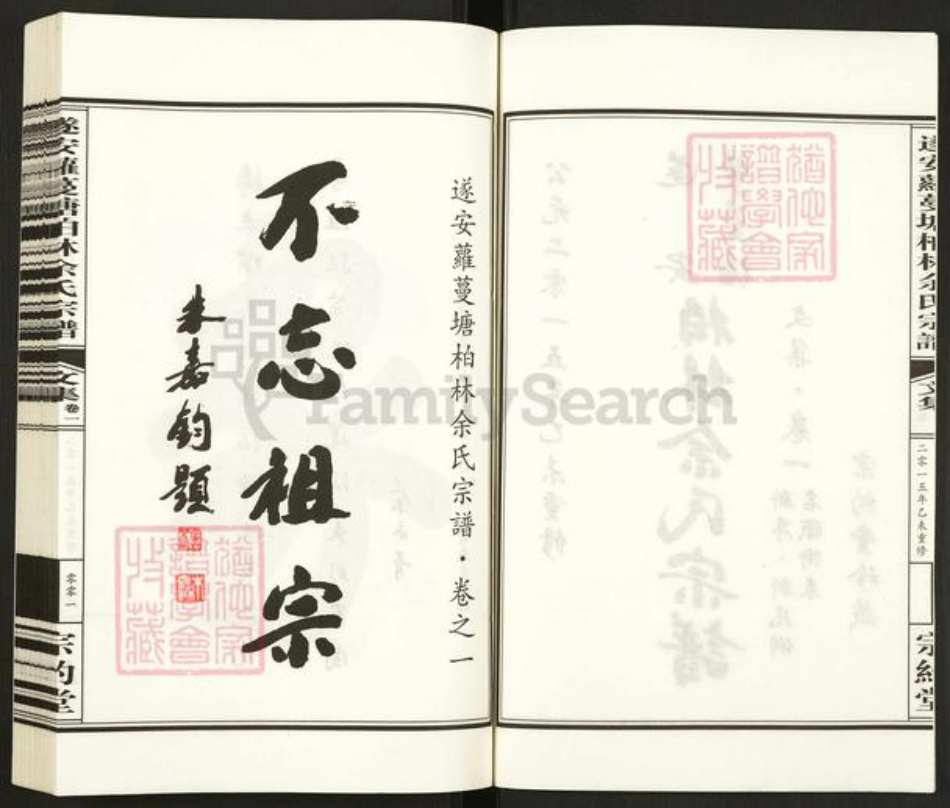 遂安蘿蔓塘柏林余氏宗譜
文集
二零一五年乙未重修
遂安蘿蔓塘柏林余氏宗譜·卷之一
不忘祖宗
朱嘉鈞題
遂安蘿蔓塘柏林余氏宗譜
文集 卷一
零零一
猶他家
譜學會
收藏
猶他家
譜學會
收藏
FamilySearch